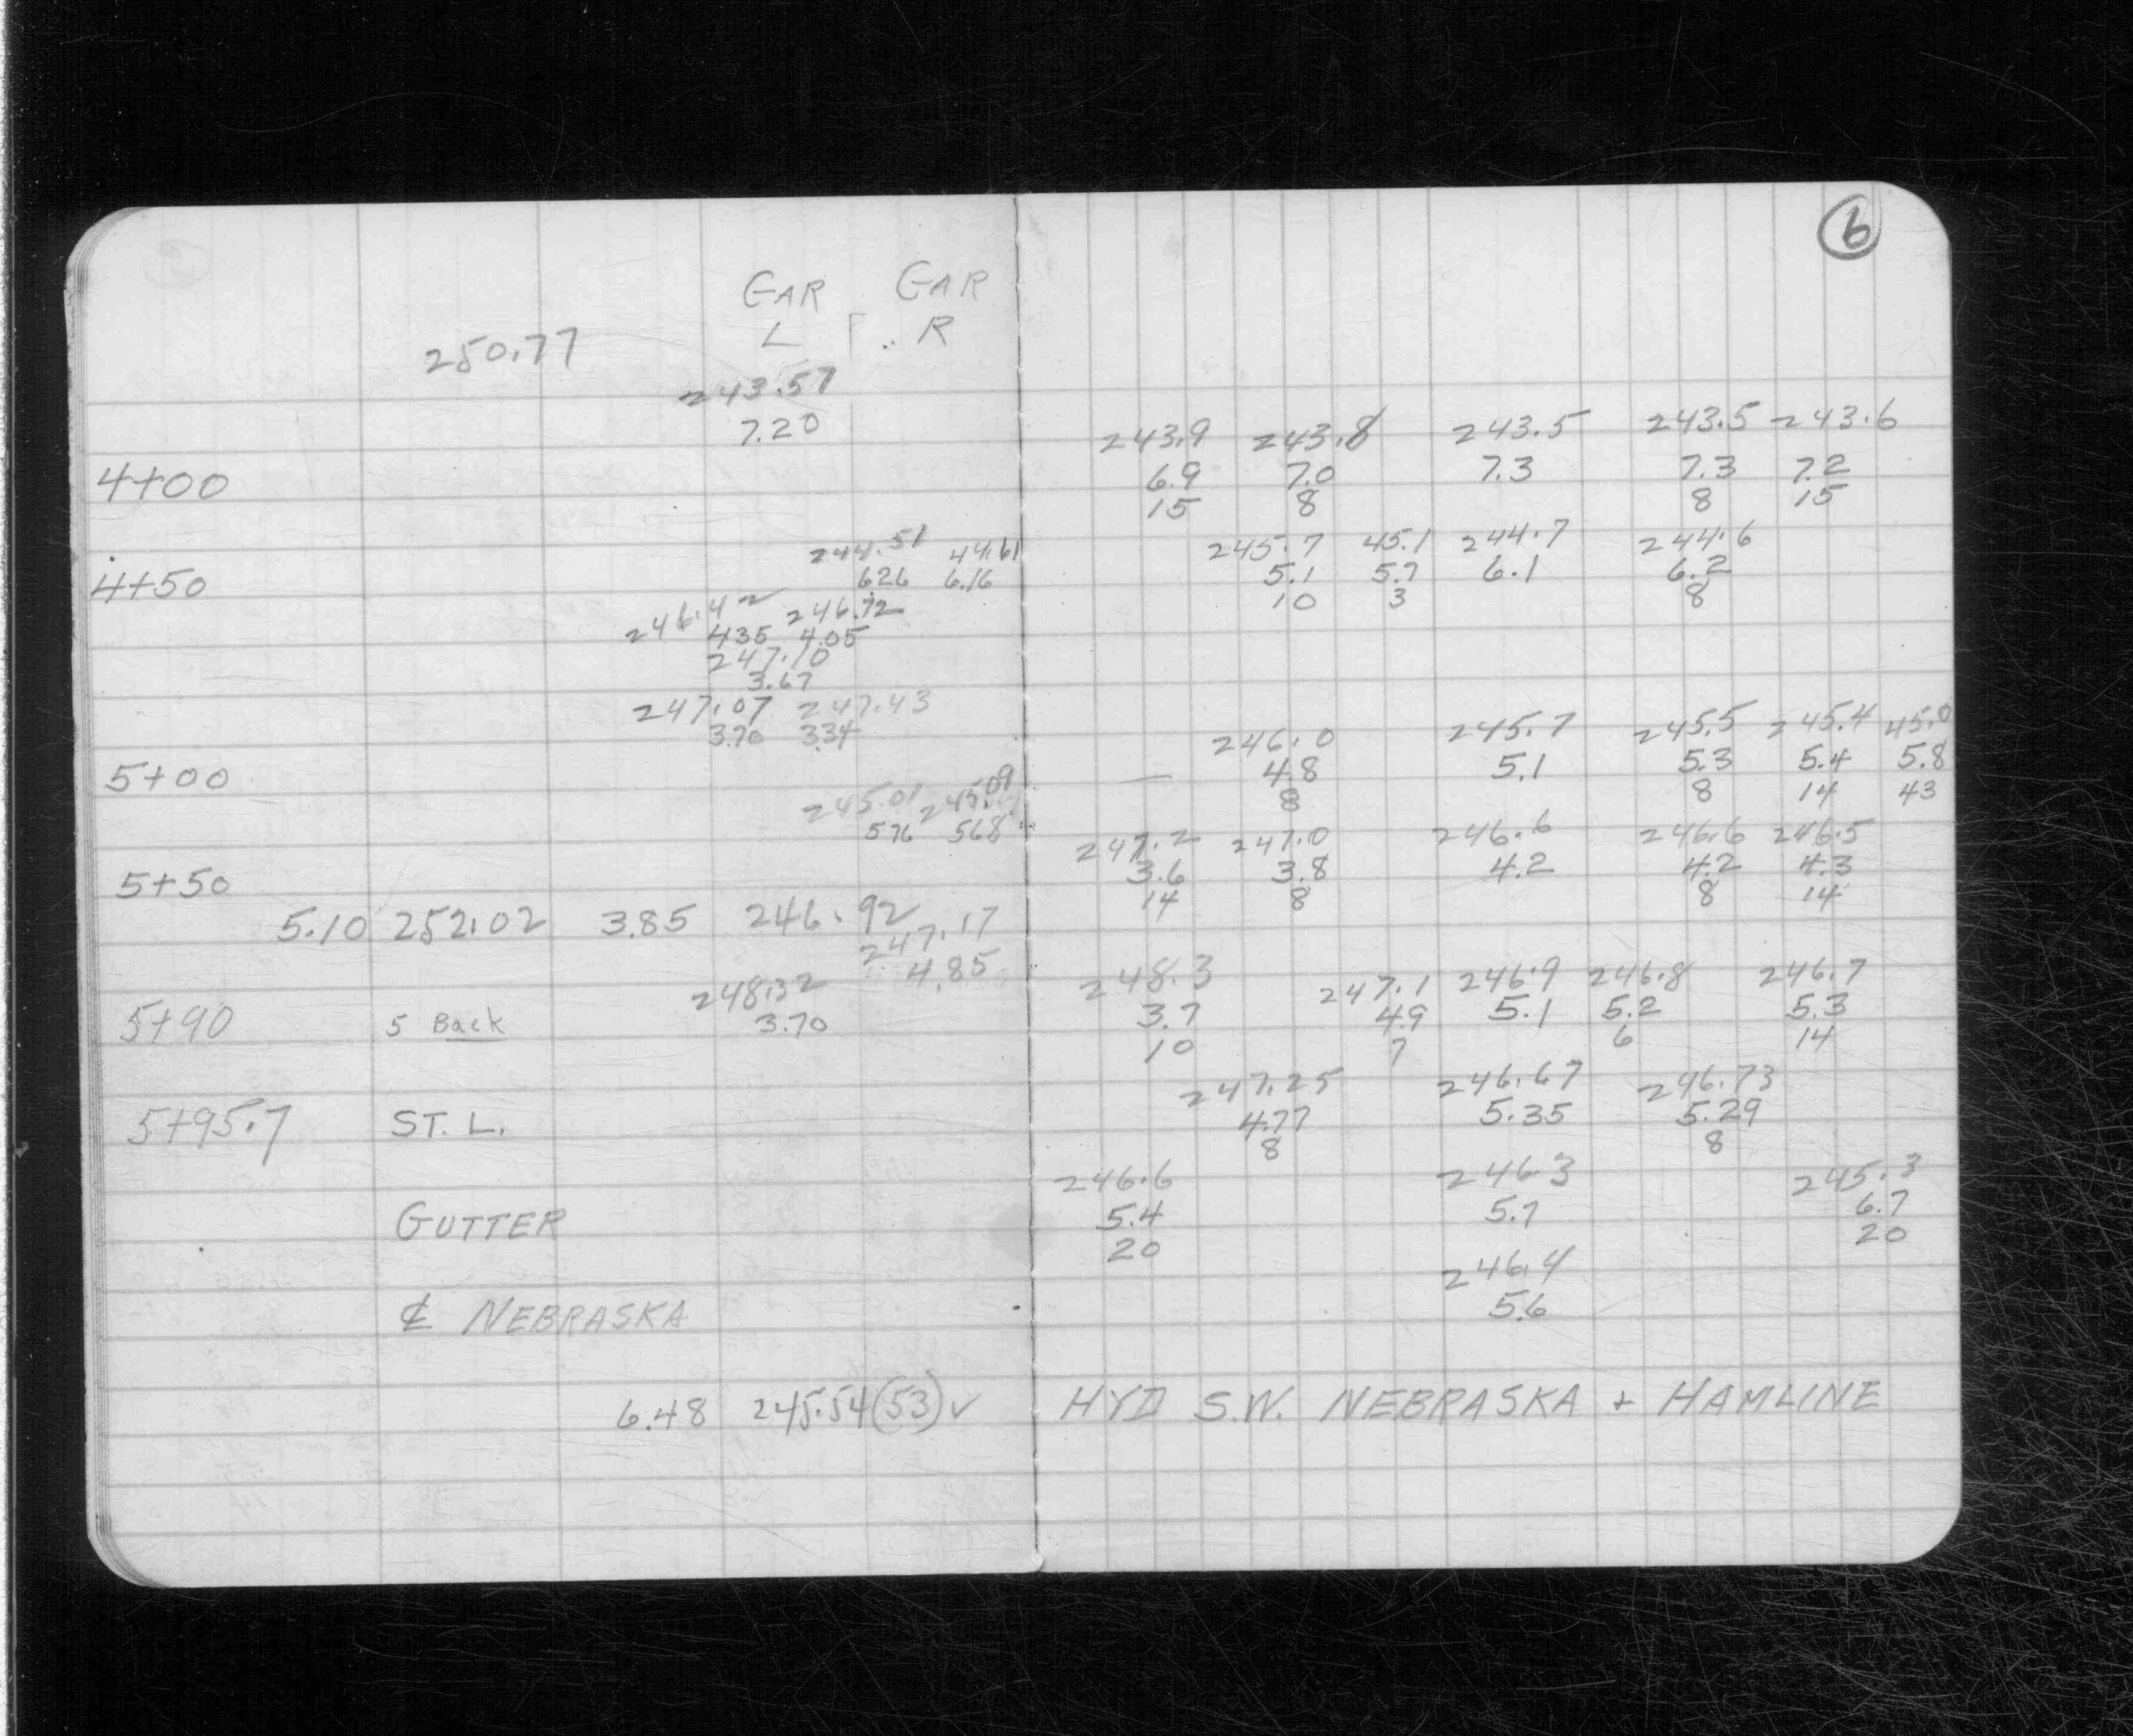 6
GAR GAR
L R
250.77
243.57
7.20
243.9 243.8 243.5 243.5 243.6
4+00 6.9 7.0 7.3 7.3 7.2
15 8 8 15
244.51 44.61 245.7 45.1 244.7 244.6
4+50 6.26 6.16 5.1 5.7 6.1 6.2
10 3 8
246.42 246.72
4.35 4.05
247.10
3.67
247.07 247.43
3.70 3.34
246.0 245.7 245.5 245.4 45.0
5+00 — 4.8 5.1 5.3 5.4 5.8
8 8 14 43
245.01 245.09
576 568
247.2 247.0 246.6 246.6 246.5
5+50 3.6 3.8 4.2 4.2 4.3
14 8 8 14
5.10 252.02 3.85 246.92
247.17
4.85
248.32 248.3 247.1 246.9 246.8 246.7
5+90 5 Back 3.70 3.7 4.9 5.1 5.2 5.3
10 7 6 14
247.25 246.67 246.73
5+95.7 ST. L. 4.77 5.35 5.29
8 8
246.6 246.3 245.3
GUTTER 5.4 5.7 6.7
20 20
246.4
℄ NEBRASKA 5.6
6.48 245.54 (53) ✓ HYD S.W. NEBRASKA + HAMLINE